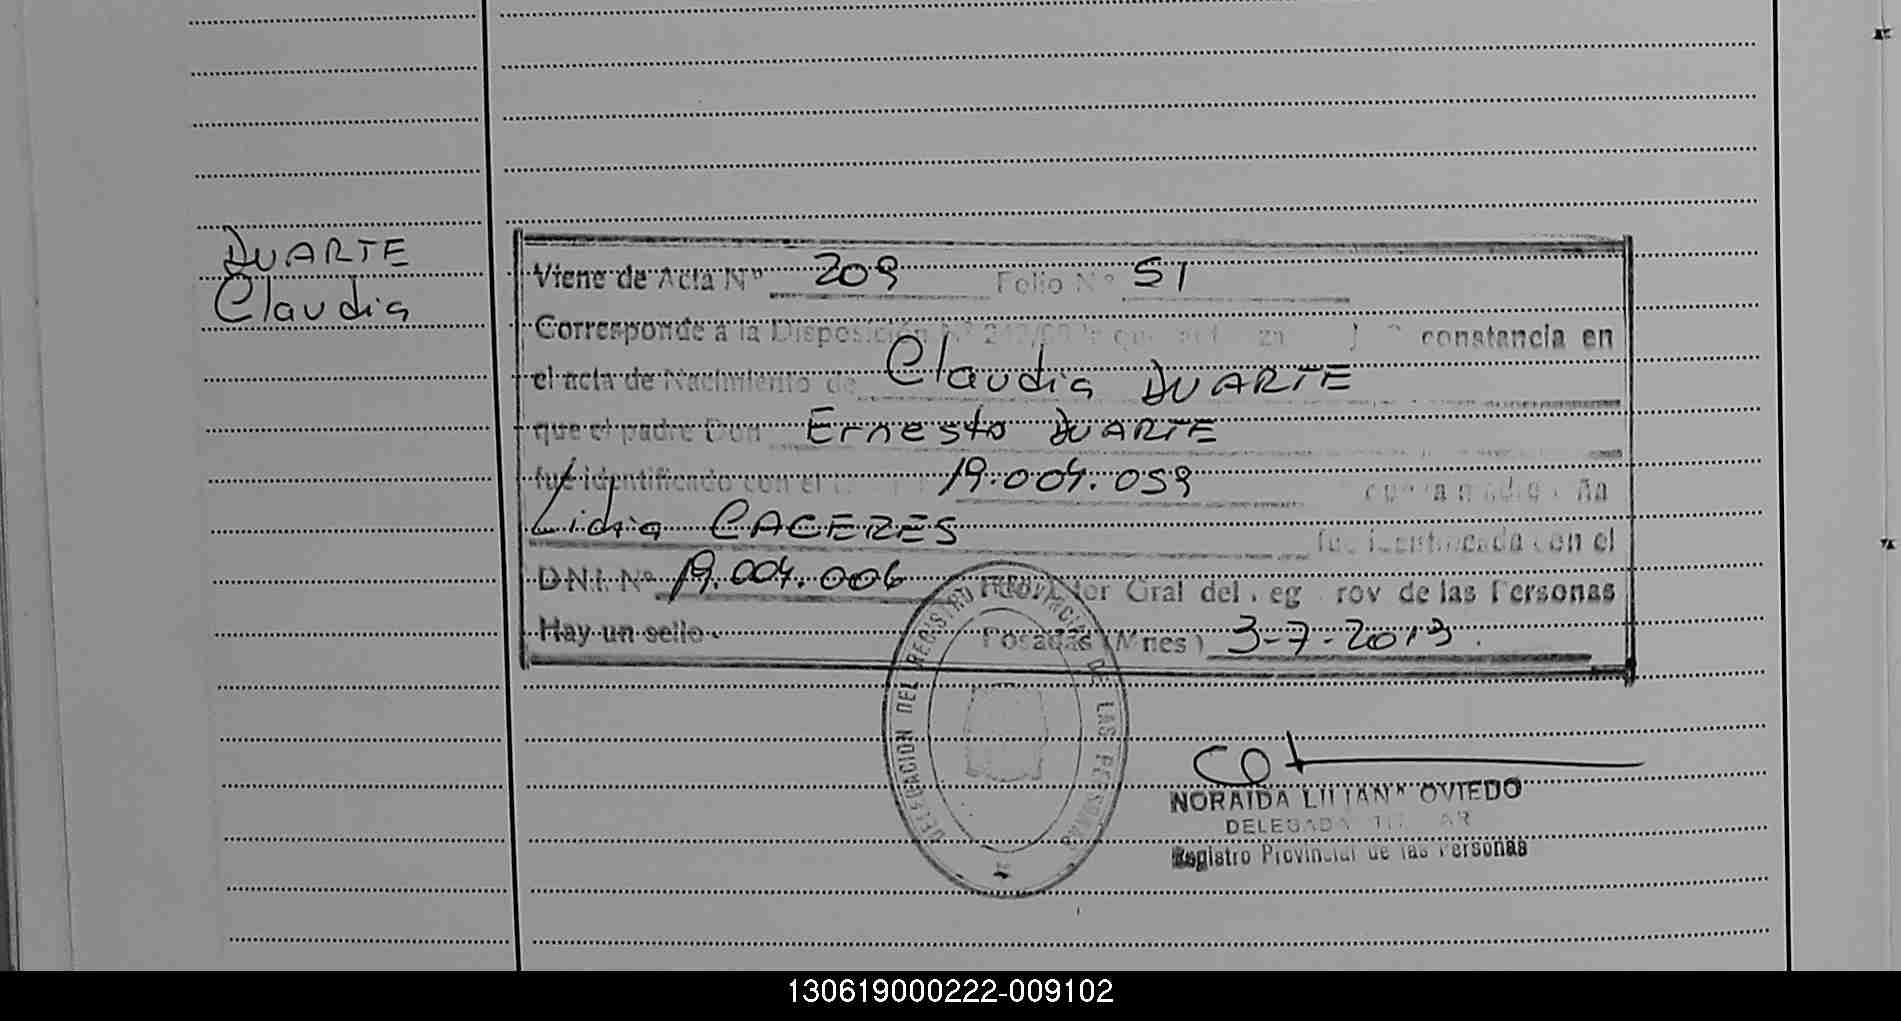 DUARTE
Claudia
Viene de Acta Nº 209 Folio Nº 51
Corresponde a la Disposición constancia en
el acta de Nacimiento de Claudia DUARTE
que el padre Don Ernesto DUARTE
fue identificado con el 19.004.059
Lidia CACERES fue identificada con el
D.N.I. Nº 19.004.006 Gral del rov de las Personas
Hay un sello. Posadas (Mnes) 3-7-2013.
DELEGACION DEL REGISTRO PROVINCIAL DE LAS PERSONAS
NORAIDA LILIANA OVIEDO
DELEGADA TITULAR
Registro Provincial de las Personas
130619000222-009102